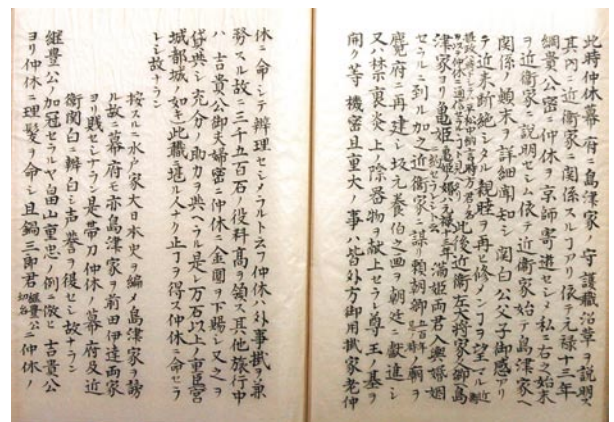 此時仲休幕府ニ島津家ノ守護職沿革ヲ説明ス
其内ニ近衛家ニ関係スルヿアリ依テ元禄十三年
綱貴公密ニ仲休ヲ京師寄道セシメ私ニ右之始末
ヲ近衛家ニ説明セシム依テ近衛家始テ島津家ヘ
関係ノ顛末ヲ詳細聞知シ関白公父子御感アリ
テ近来断絶シタル親睦ヲ再ヒ修メンヿヲ望マル
此後近衛左大将家久卿島
津家ヨリ亀姫満姫両君入輿婚姻
セラルニ到ル加之近衛家ト謀リ頼朝卿ノ廟ヲ
麑府ニ再建シ坂元養伯之画ヲ朝廷ニ献進シ
又ハ禁裏炎上ノ際器物ヲ献上セラレ尊王ノ基ヲ
開ク等機密且重大ノ事ハ皆外方御用掛家老仲
休ニ命シテ辨理セシメラルト云フ仲休ハ外事掛ヲ兼
務スル故ニ三千五百石ノ役料高ヲ領ス其他旅行中
ハ吉貴公御夫婦密ニ仲休ニ金圓ヲ下賜シ又之ヲ
貸與シ充分ノ助力ヲ與ヘラル是レ万石以上ノ重臣宮
城都城ノ如キ此職ニ堪ル人ナク止ヿヲ得ス仲休ニ命セラ
レシ故ナラン
按スルニ水戸家大日本史ヲ編メ島津家ヲ謗
ル故ニ幕府モ亦島津家ヲ前田伊達両家
ヨリ賤セシナラン是帯刀仲休ノ幕府及近
衛関白ニ辨白シ声誉ヲ復セシ故ナラン
継豊公ノ加冠セラルヤ畠山重忠ノ例ニ倣ヒ吉貴公
ヨリ仲休ニ理髪ヲ命シ且鍋三郎君継豊公幼名ニ仲休ノ